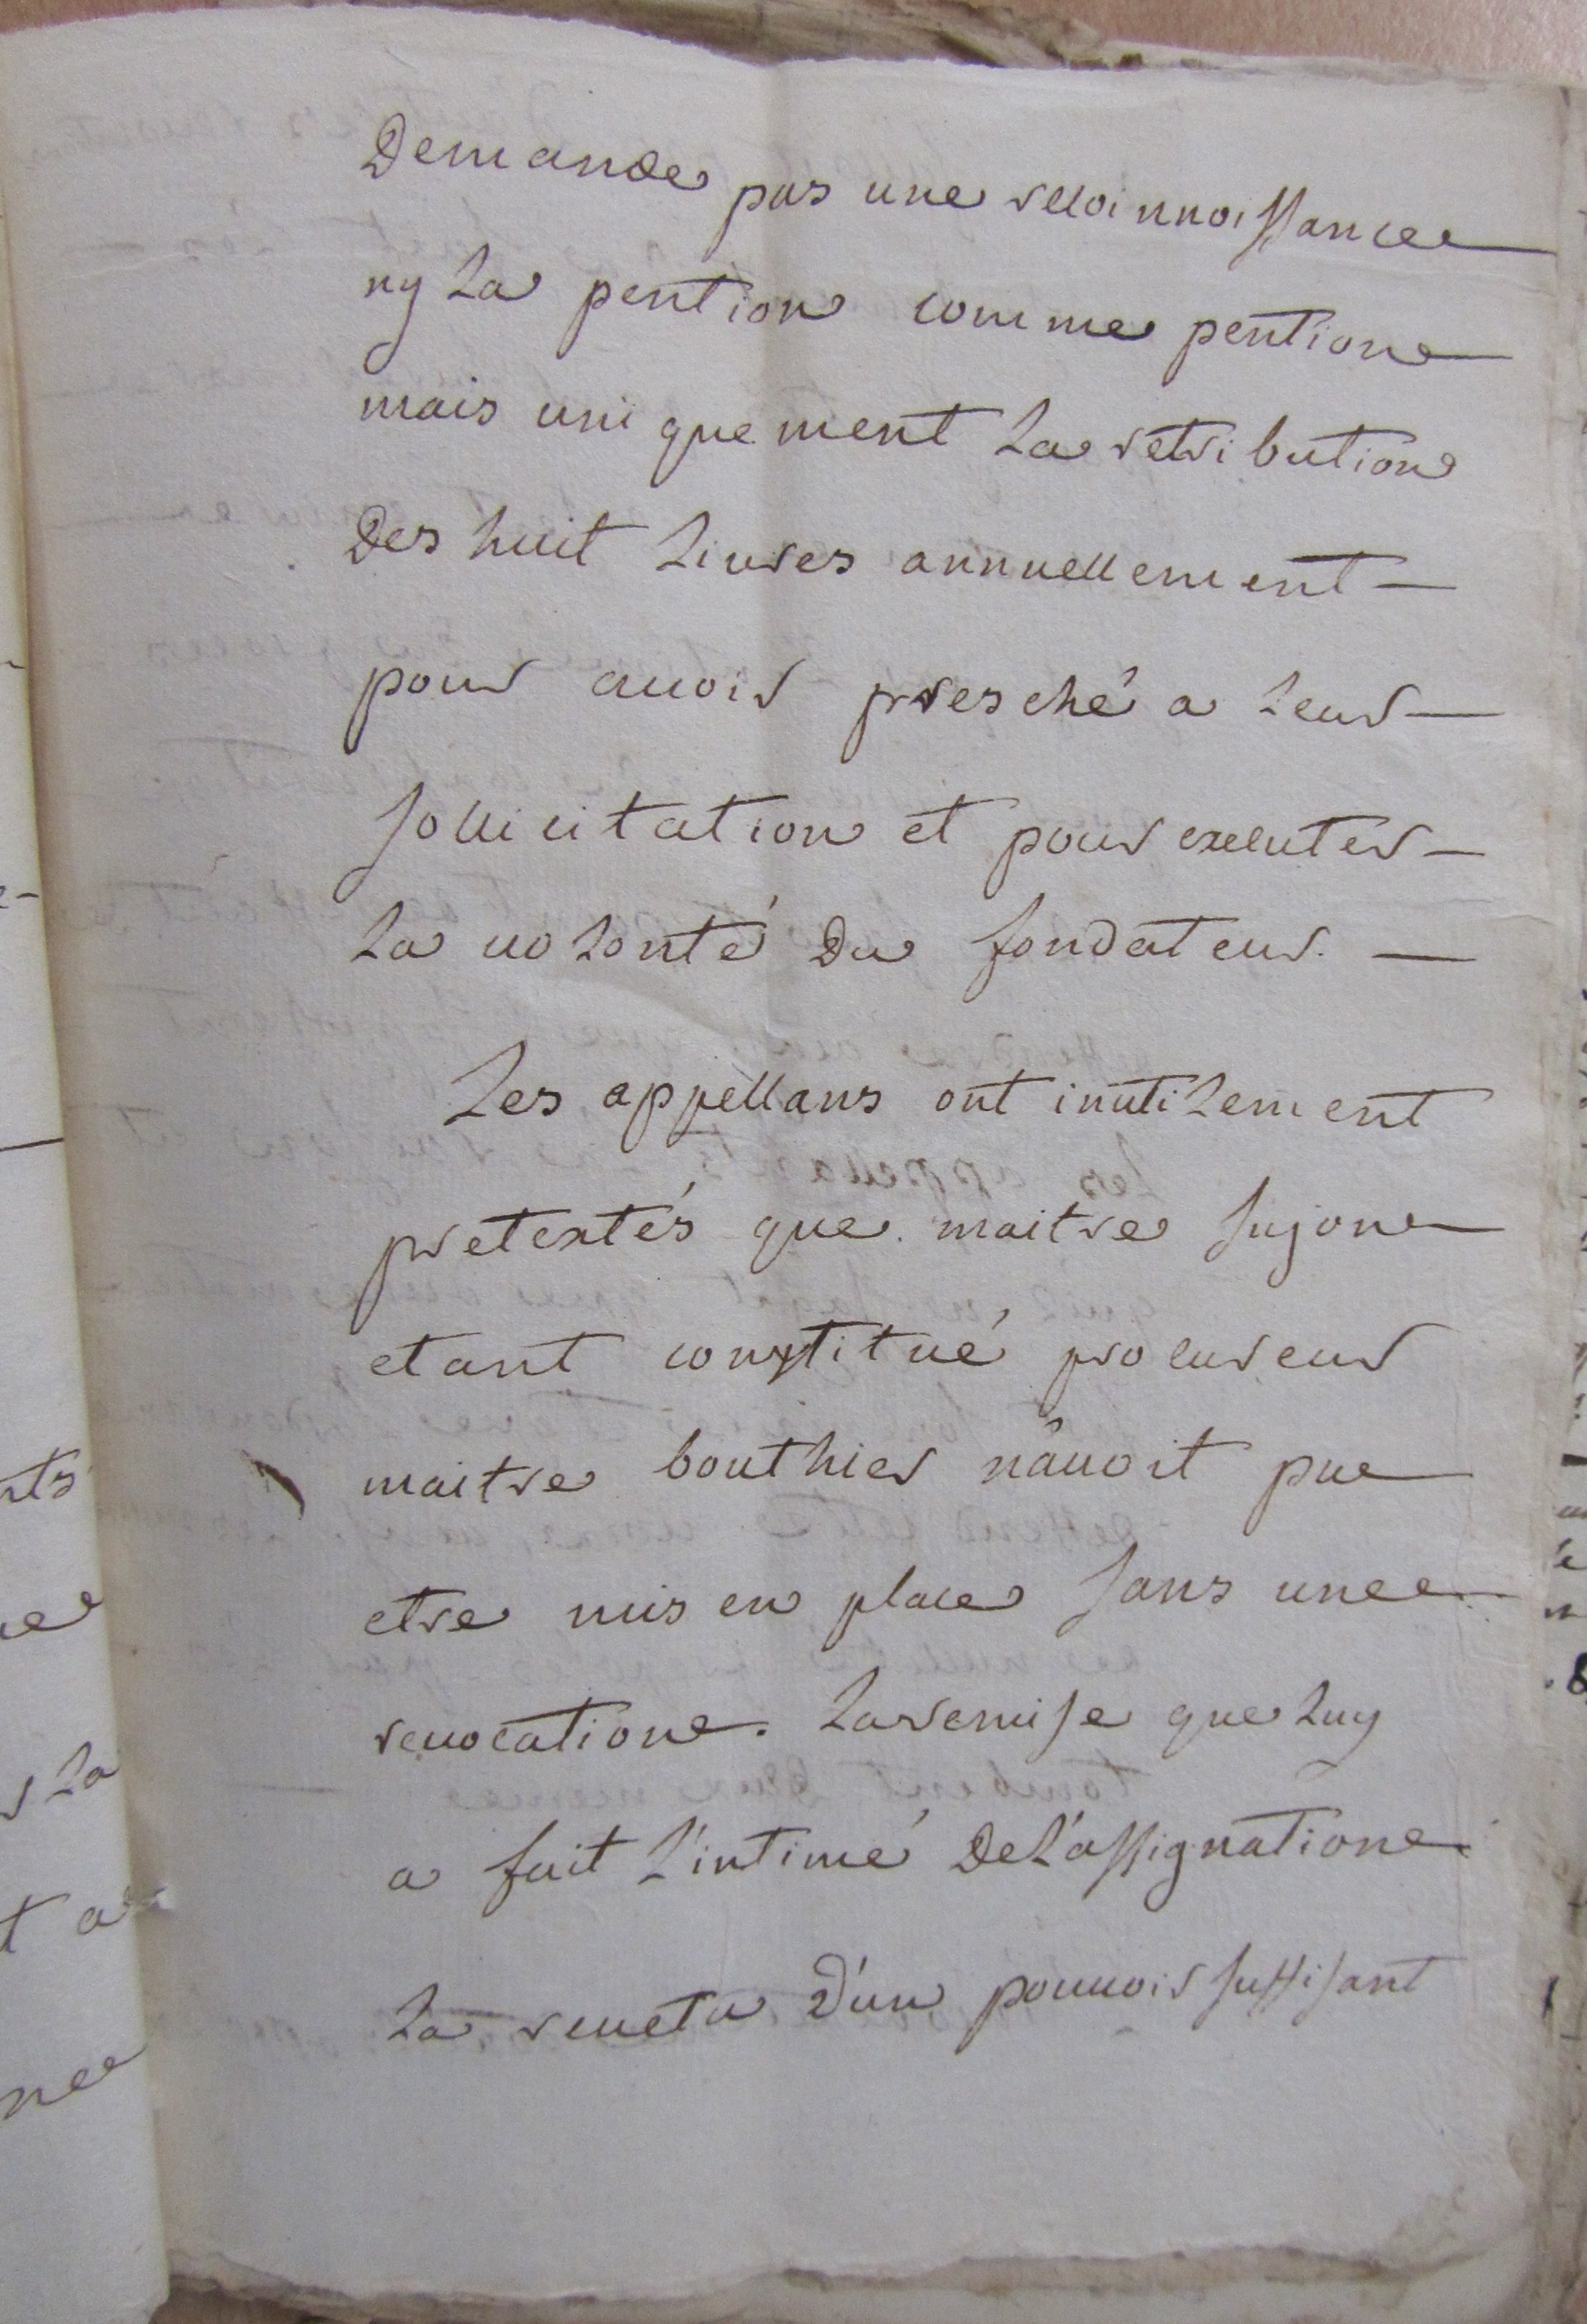 Demande pas une recoinnoissance
ny la pention comme pention
mais uniquement la retribution
Des huit livres annuellement
pour avoir presché a leur
sollicitation et pour executer
la volonté du fondateur.
Les appellans ont inutilement
pretextés que maitre Sujon
etant constitué procureur
maitre bouthier nâvoit pu
etre mis en place sans une
revocation. la remise que luy
a fait l'intimé de l'assignation
la revetu d'un pouvoir suffisant